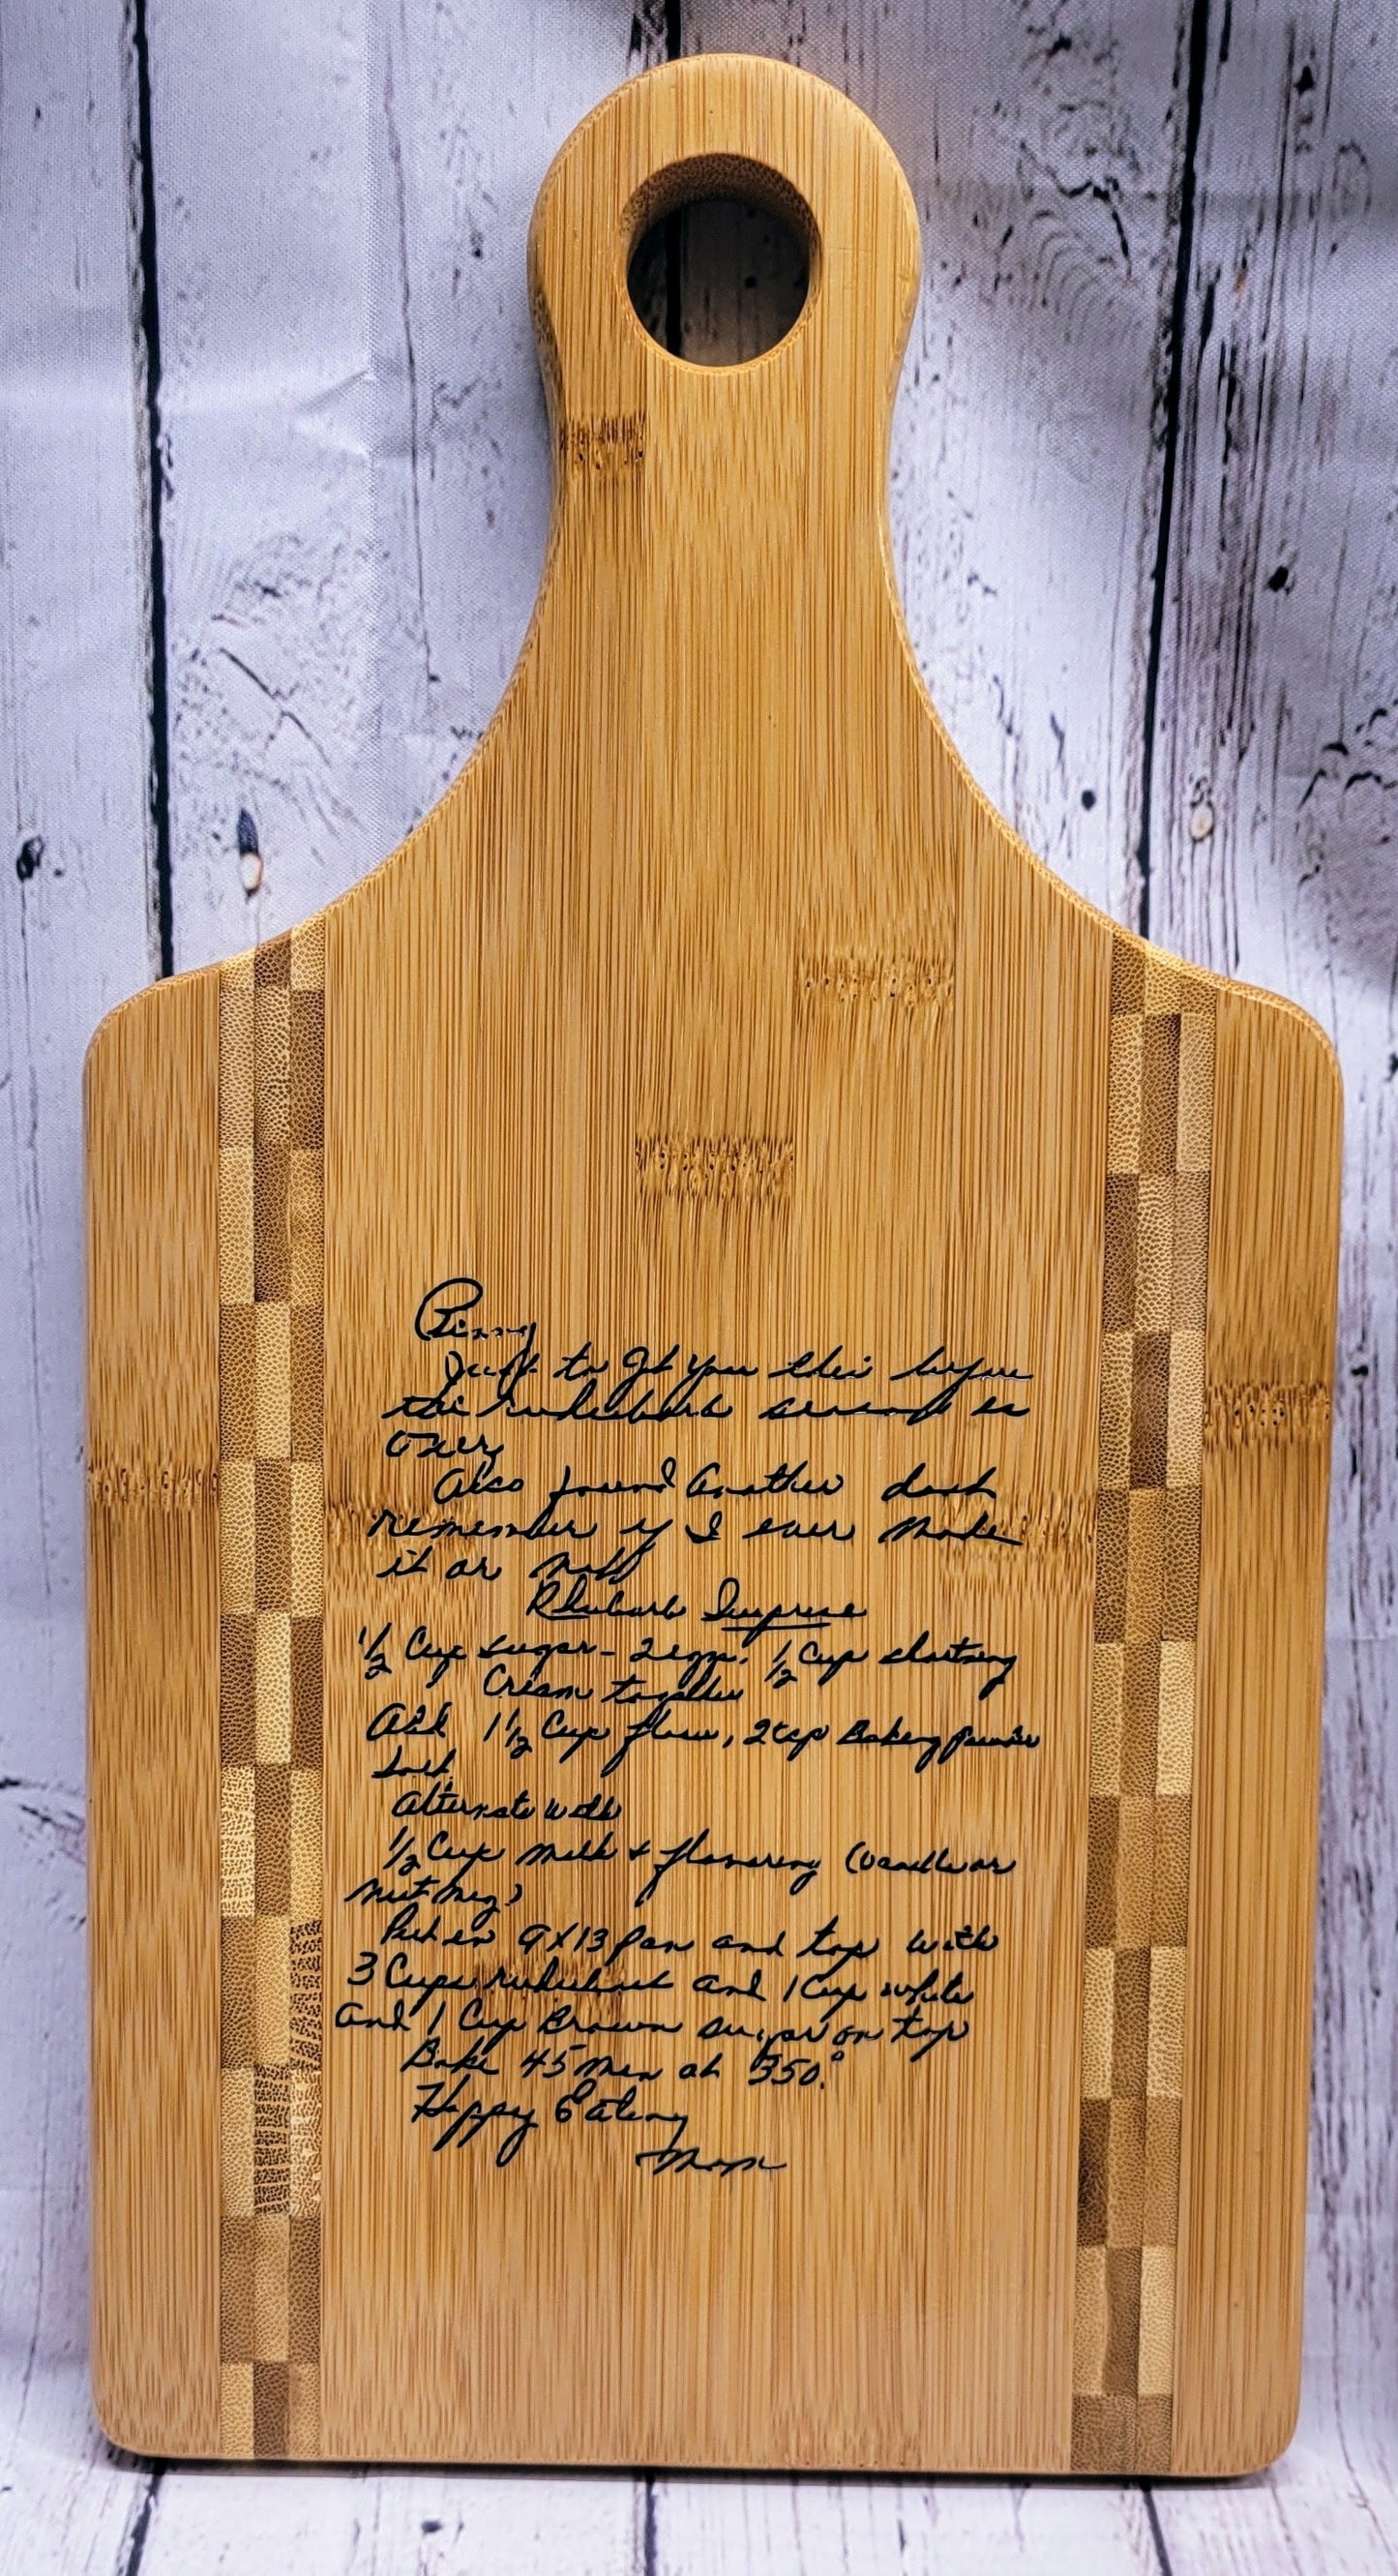 to get you this before
the ruhubarb season is
over,
Also found another dont
remember if I ever made
it or not
Rhubarb Surprise
1/2 Cup sugar - 2 eggs. 1/2 Cup shortning
Cream together
Add 1 1/2 Cup flour, 2 tsp Baking powder
Salt.
Alternate with
1/2 Cup milk & flavoring (vanilla or
nutmeg)
Put in 9x13 pan and top with
3 Cups ruhubarb and 1 Cup white
and 1 Cup Brown sugar on top
Bake 45 min at 350.°
Happy Eating
Mom